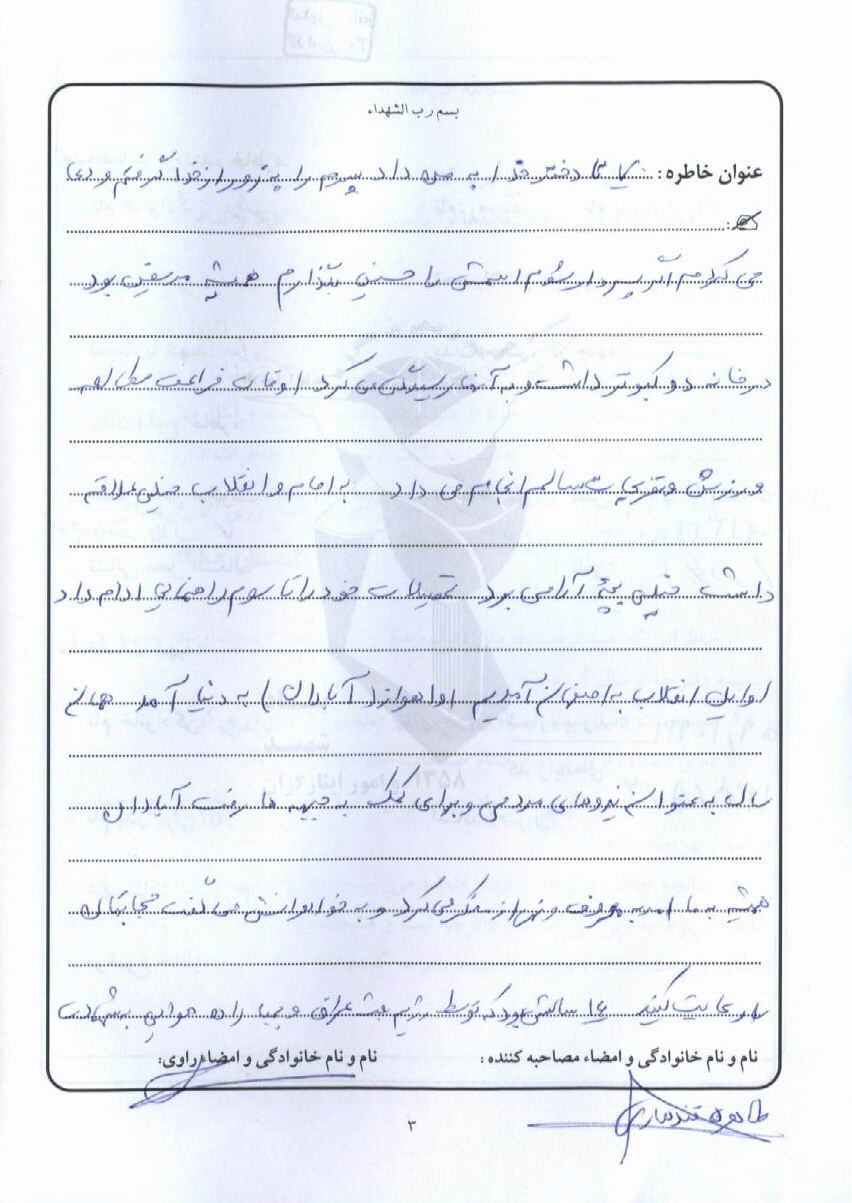 بسم رب الشهداء
عنوان خاطره: تا دختر خدا به من داد پسرم را به زور از خدا گرفتم و دعا
می کردم اگر پسردار شوم اسمش را حسین بگذارم همیشه مریض بود
در خانه دو کبوتر داشت و به آنها رسیدگی می کرد اوقات فراغت مطالعه
ورزش و تفریحات سالم انجام می داد به امام و انقلاب خیلی علاقه
داشت خیلی بچه آرامی بود تحصیلات خود را تا سوم راهنمایی ادامه داد
اوایل انقلاب به اصفهان آمدیم اهواز (آبادان) به دنیا آمد همان
سال به عنوان نیروهای مردمی و برای کمک به جبهه ها رفت آبادان
همیشه به ما امر به معروف و نهی از منکر می کرد و به خواهرانش می گفت حجابتان
را رعایت کنید ۱۶ سالش بود که توسط رژیم بعث عراق و بمباران هوایی به شهادت
نام و نام خانوادگی و امضاء مصاحبه کننده: نام و نام خانوادگی و امضاء راوی:
طاهره
۳